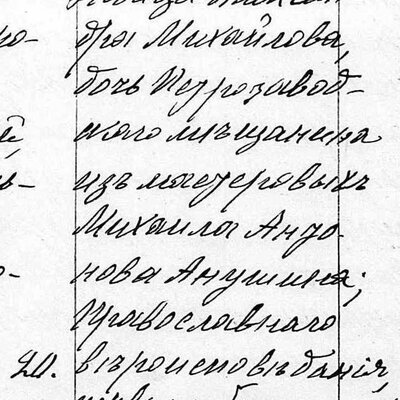 но- бра Михайлова,
дочь Петрозавод-
й, скаго мѣщанина
ь- изъ мастеровыхъ
Михаила Анто-
о- нова Анушина;
Православнаго
20. вѣроисповѣданія,